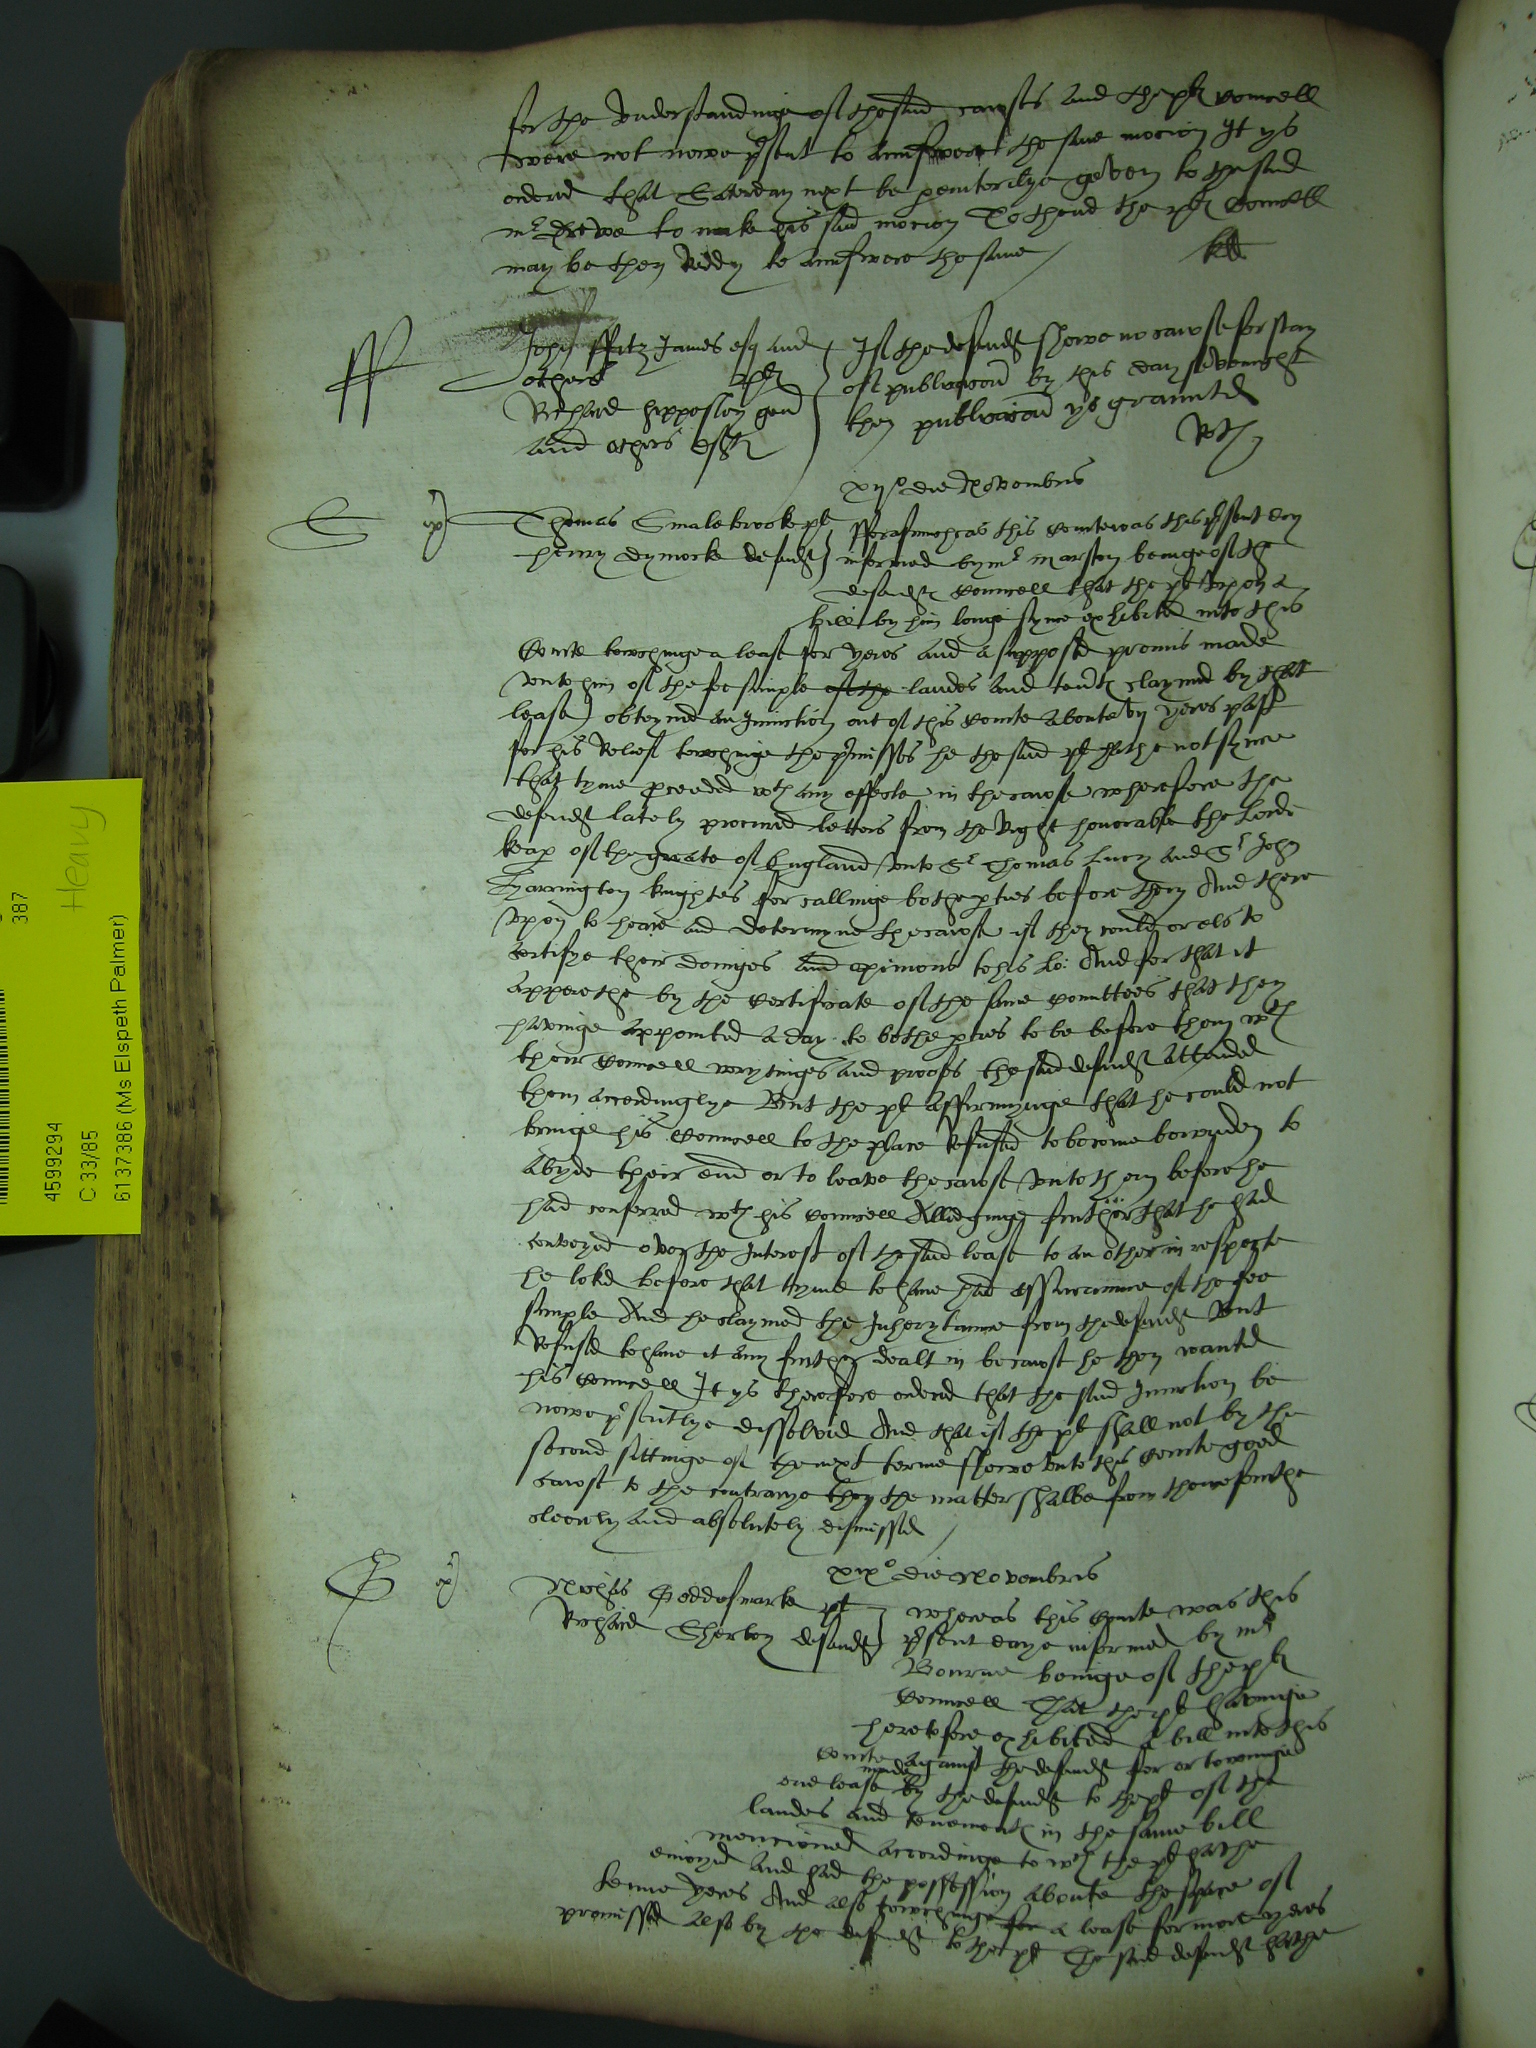 for the understandinge of the said cawses and the plt councell
were not nowe p'sent to aunswere the same mocion It ys
ordered that Saterday next be peremtorilye geven to the said
mr to make his said mocion To thend the plt councell
may be then Reddy to aunswere the same
John ffitz James esq and
others plt
Richard hippesley gent
and others deft
If the defendt shewe no cawse for stay
of publicacon by this day sevenight
then publicacon ys graunted
xijo die Novembris
S
Thomas Smalebrooke plt
henry dymocke defendt
fforasmuch as this courte was this p'sent day
informed by mr marston beinge of the
defendt councell that the plt vpon a
bill by him longe synce exhibited into this
Courte towchinge a lease for yeres and a supposed promis made
vnto him of the fee simple of the landes and tents claymed by that
lease obteyned an Iniunction out of this courte aboute vij yeres past
for his Relief towchinge the p'misses he the said plt hathe not synce
that tyme proceeded wth any effecte in the cawse wherefore the
defendt lately procured letters from the Right honorable the Lorde
keap of the greate of England vnto Sr Thomas Lucy and Sr John
Harrington knightes for callinge bothe pties before them And there
vpon to heare and determyne the cawse if they could or els to
certifye their doinges and opinions to his Lo: And for that it
apperethe by the certificate of the same comittees that they
havinge appointed a day to bothe pties to be before them wth
their councell wrytinges and proofes the said defendt attended
them accordinglye But the plt affirmynge that he could not
bringe his councell to the place Refused to become bounden to
abyde their end or to leave the cawse vnto them before he
had conferred wth his councell Alledginge further that he had
conveyed over the Interest of the said lease to an other in respecte
he loked before that tyme to have had assuraunce of the fee
simple And he claymed the Inherytaunce from the defendt But
Refused to have it any further dealt in becawse he then wanted
his councell It ys therefore ordered that the said Iniunction be
nowe p'sentlye dissolved And that if the plt shall not by the
second sittinge of the next terme shewe vnto this courte good
cawse to the contrarye then the matter shalbe from thencefourthe
cleerly and absolutely dismissed
xixo die Novembris
G
Nichas Geddesmarke plt
Richard Sherley defendt
whereas this courte was this
p'sent daye informed by mr
Bourne beinge of the plt
councell That the plt havinge
heretofore exhibited a bill into this
courte against the defendt for or towchinge
one lease made by the defendt to the plt of the
landes and tenements in the same bill
mencioned accordinge to wch the plt hathe
enioyed and had the possession aboute the space of
tenne yeres And also towchinge for a lease for more yeres
promissed also by the defendt to the plt The said defendt hathe
387
Heavy
4599294
C 33/85
6137386 (Ms Elspeth Palmer)